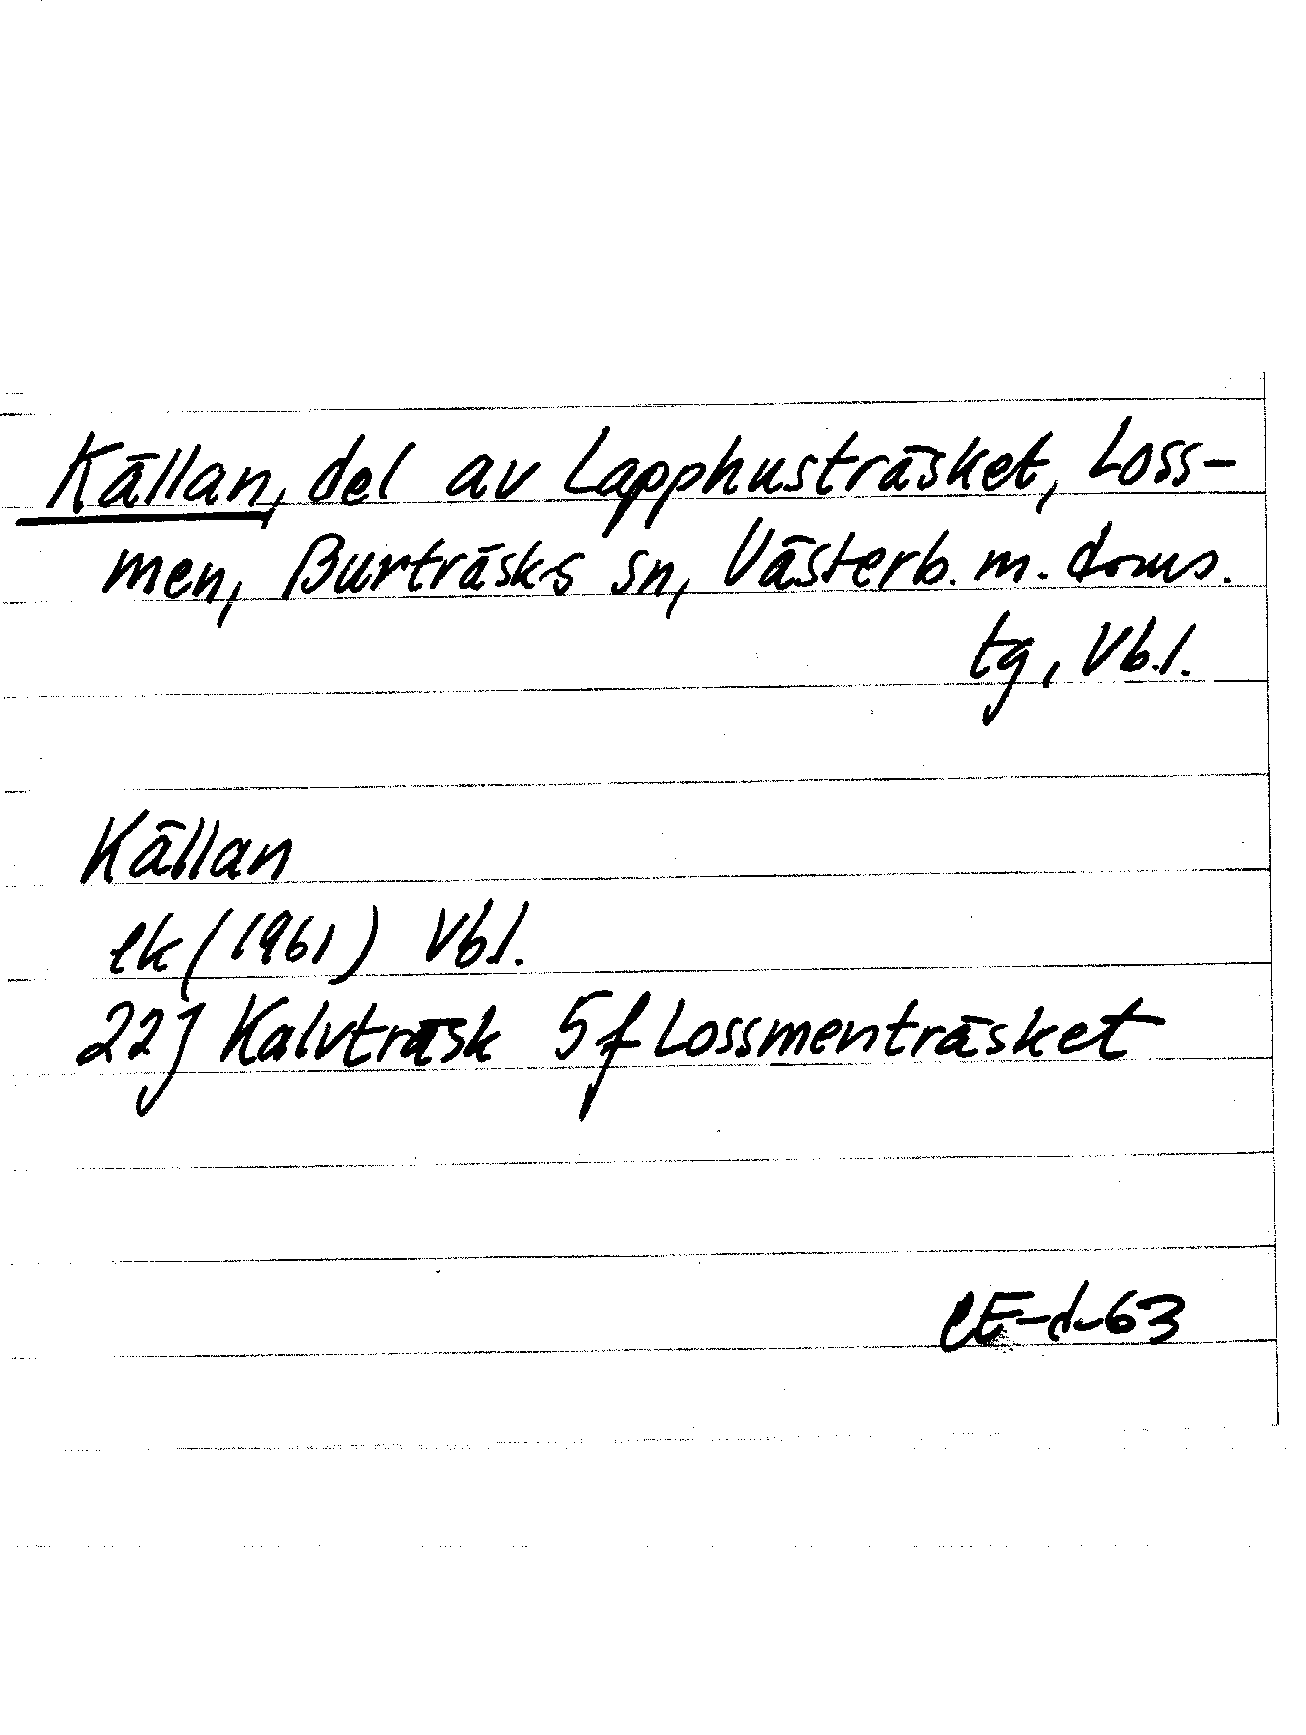 Källan, del av Lapphusträsket, Loss-
men, Burträsks sn, Västerb. m. doms.
tg, Vb.l.
Källan
ek (1961) Vbl.
22J Kalvträsk 5f Lossmenträsket
CE-d-63